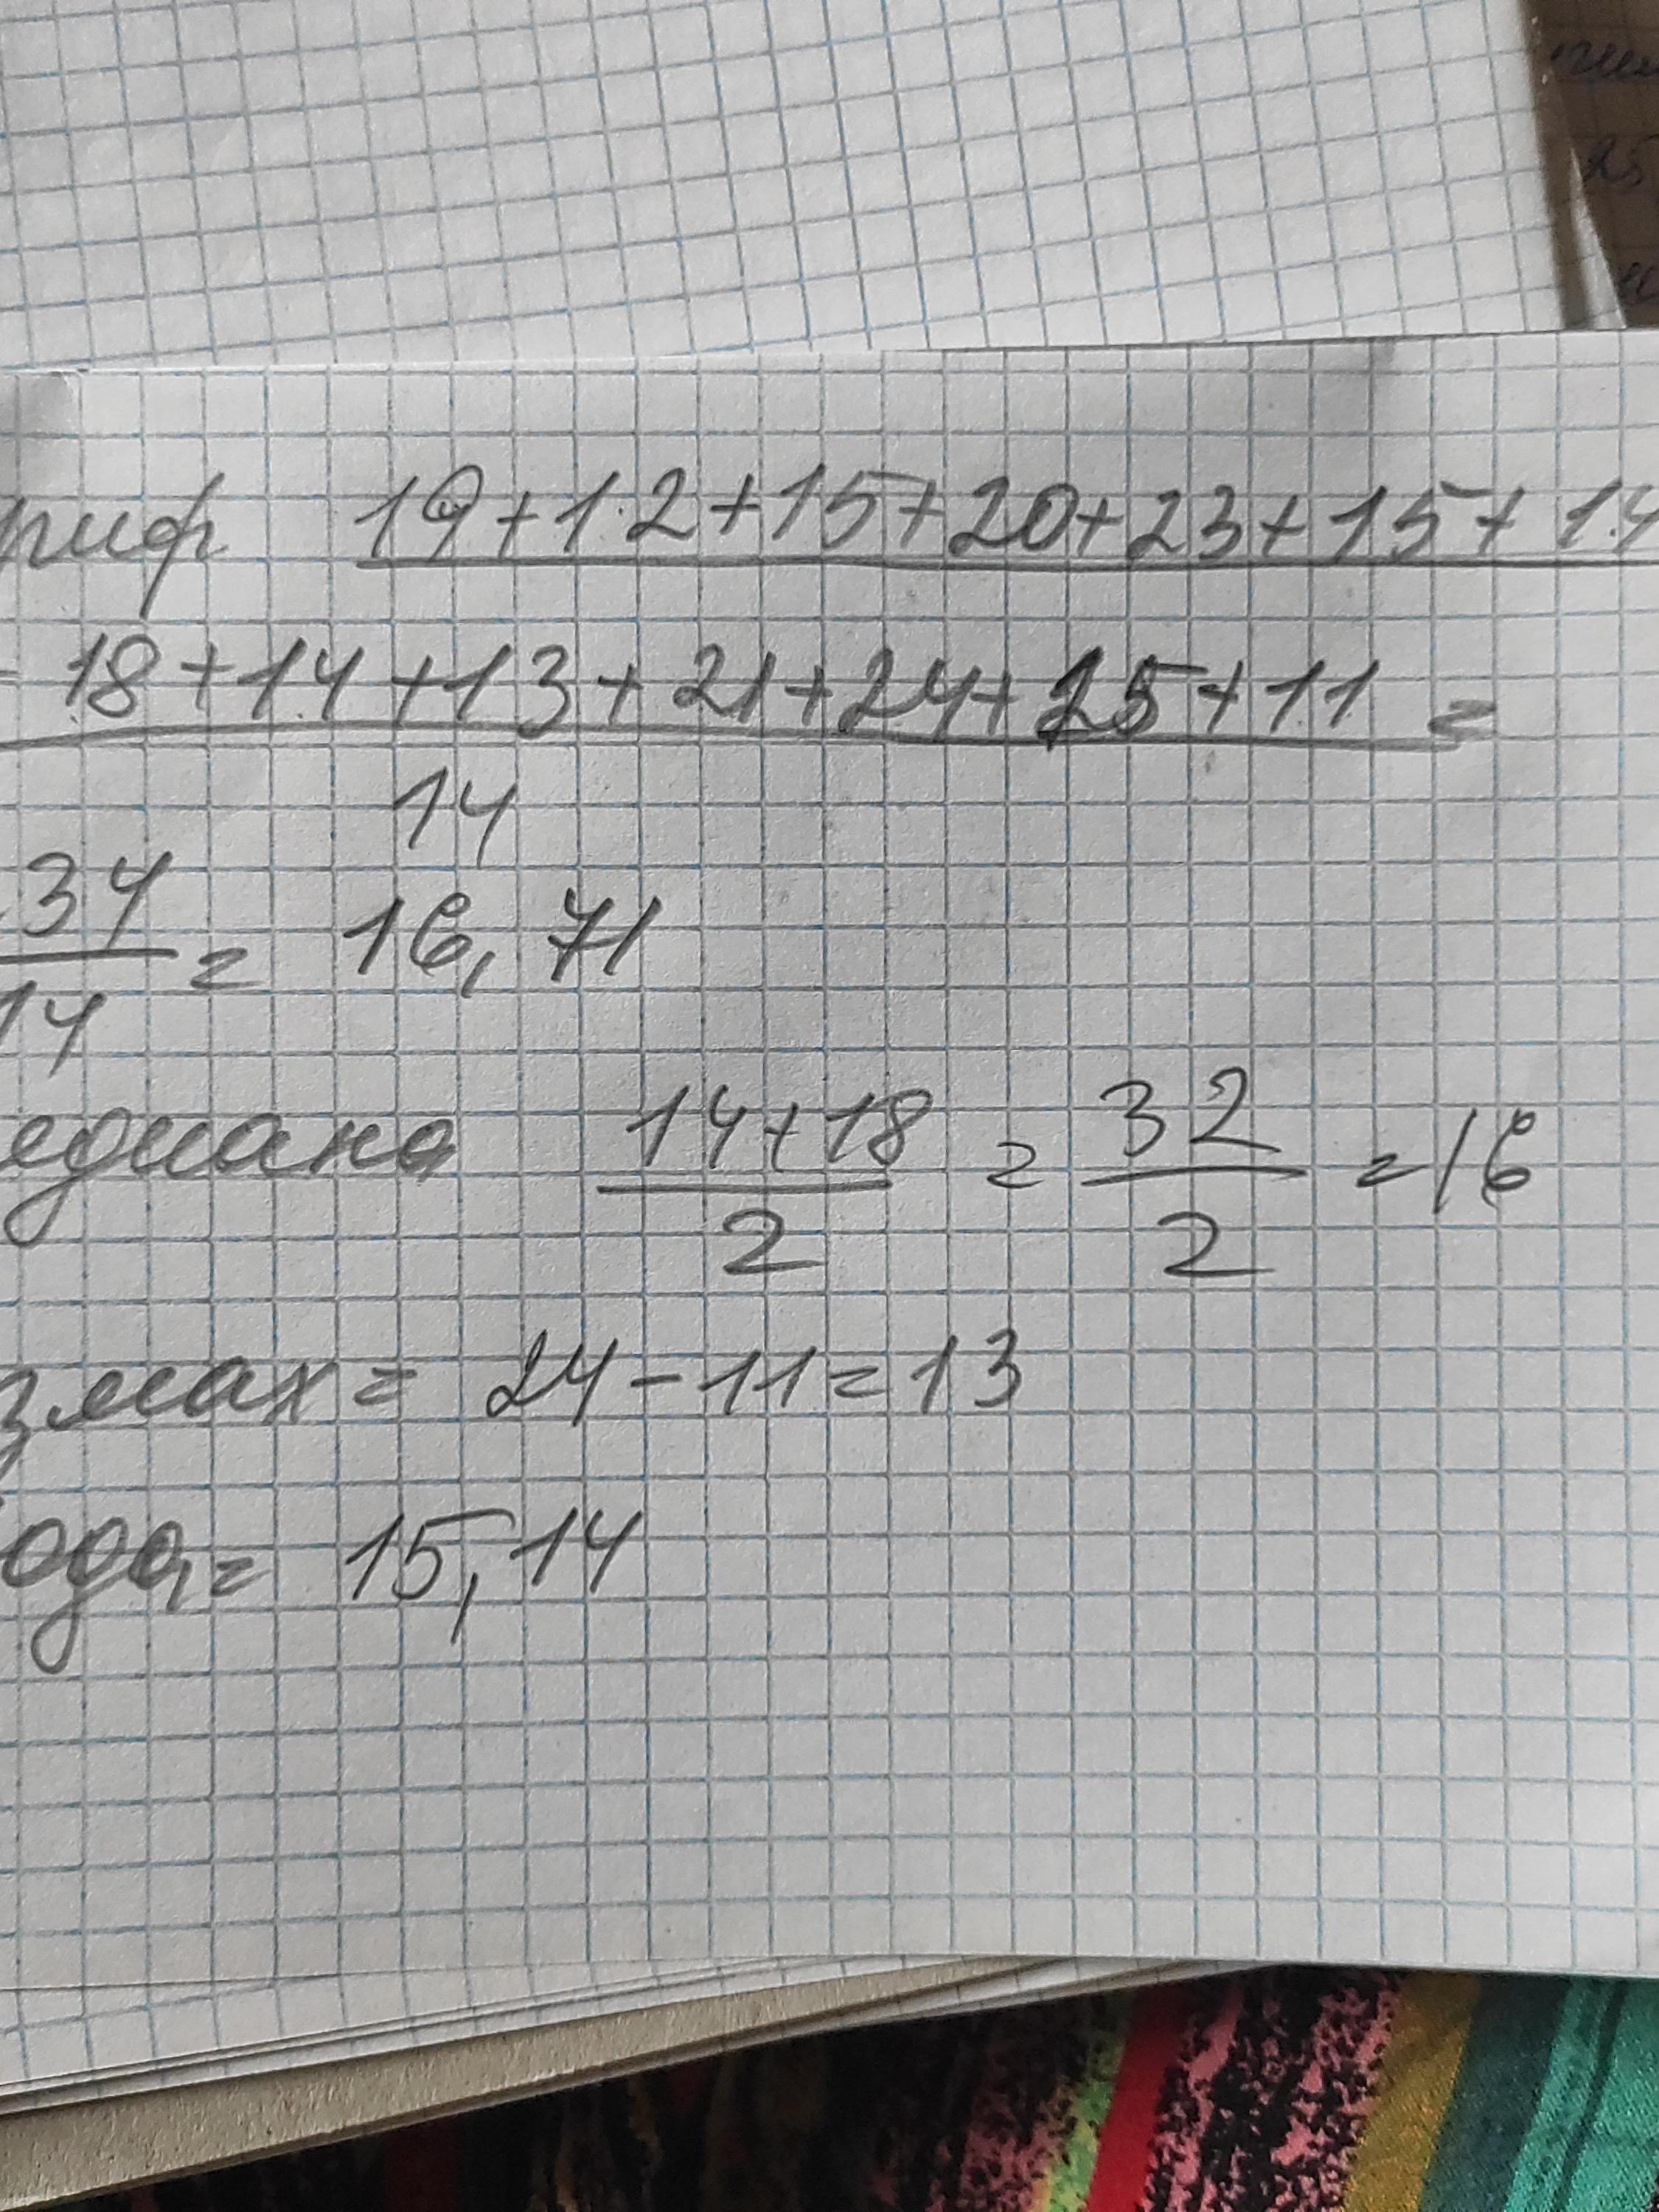 риф 19+12+15+20+23+15+14
18+14+13+21+24+25+11 =
14
34
14
= 16,71
едиана 14+18 / 2 = 32 / 2 = 16
змах = 24-11=13
ода = 15,14